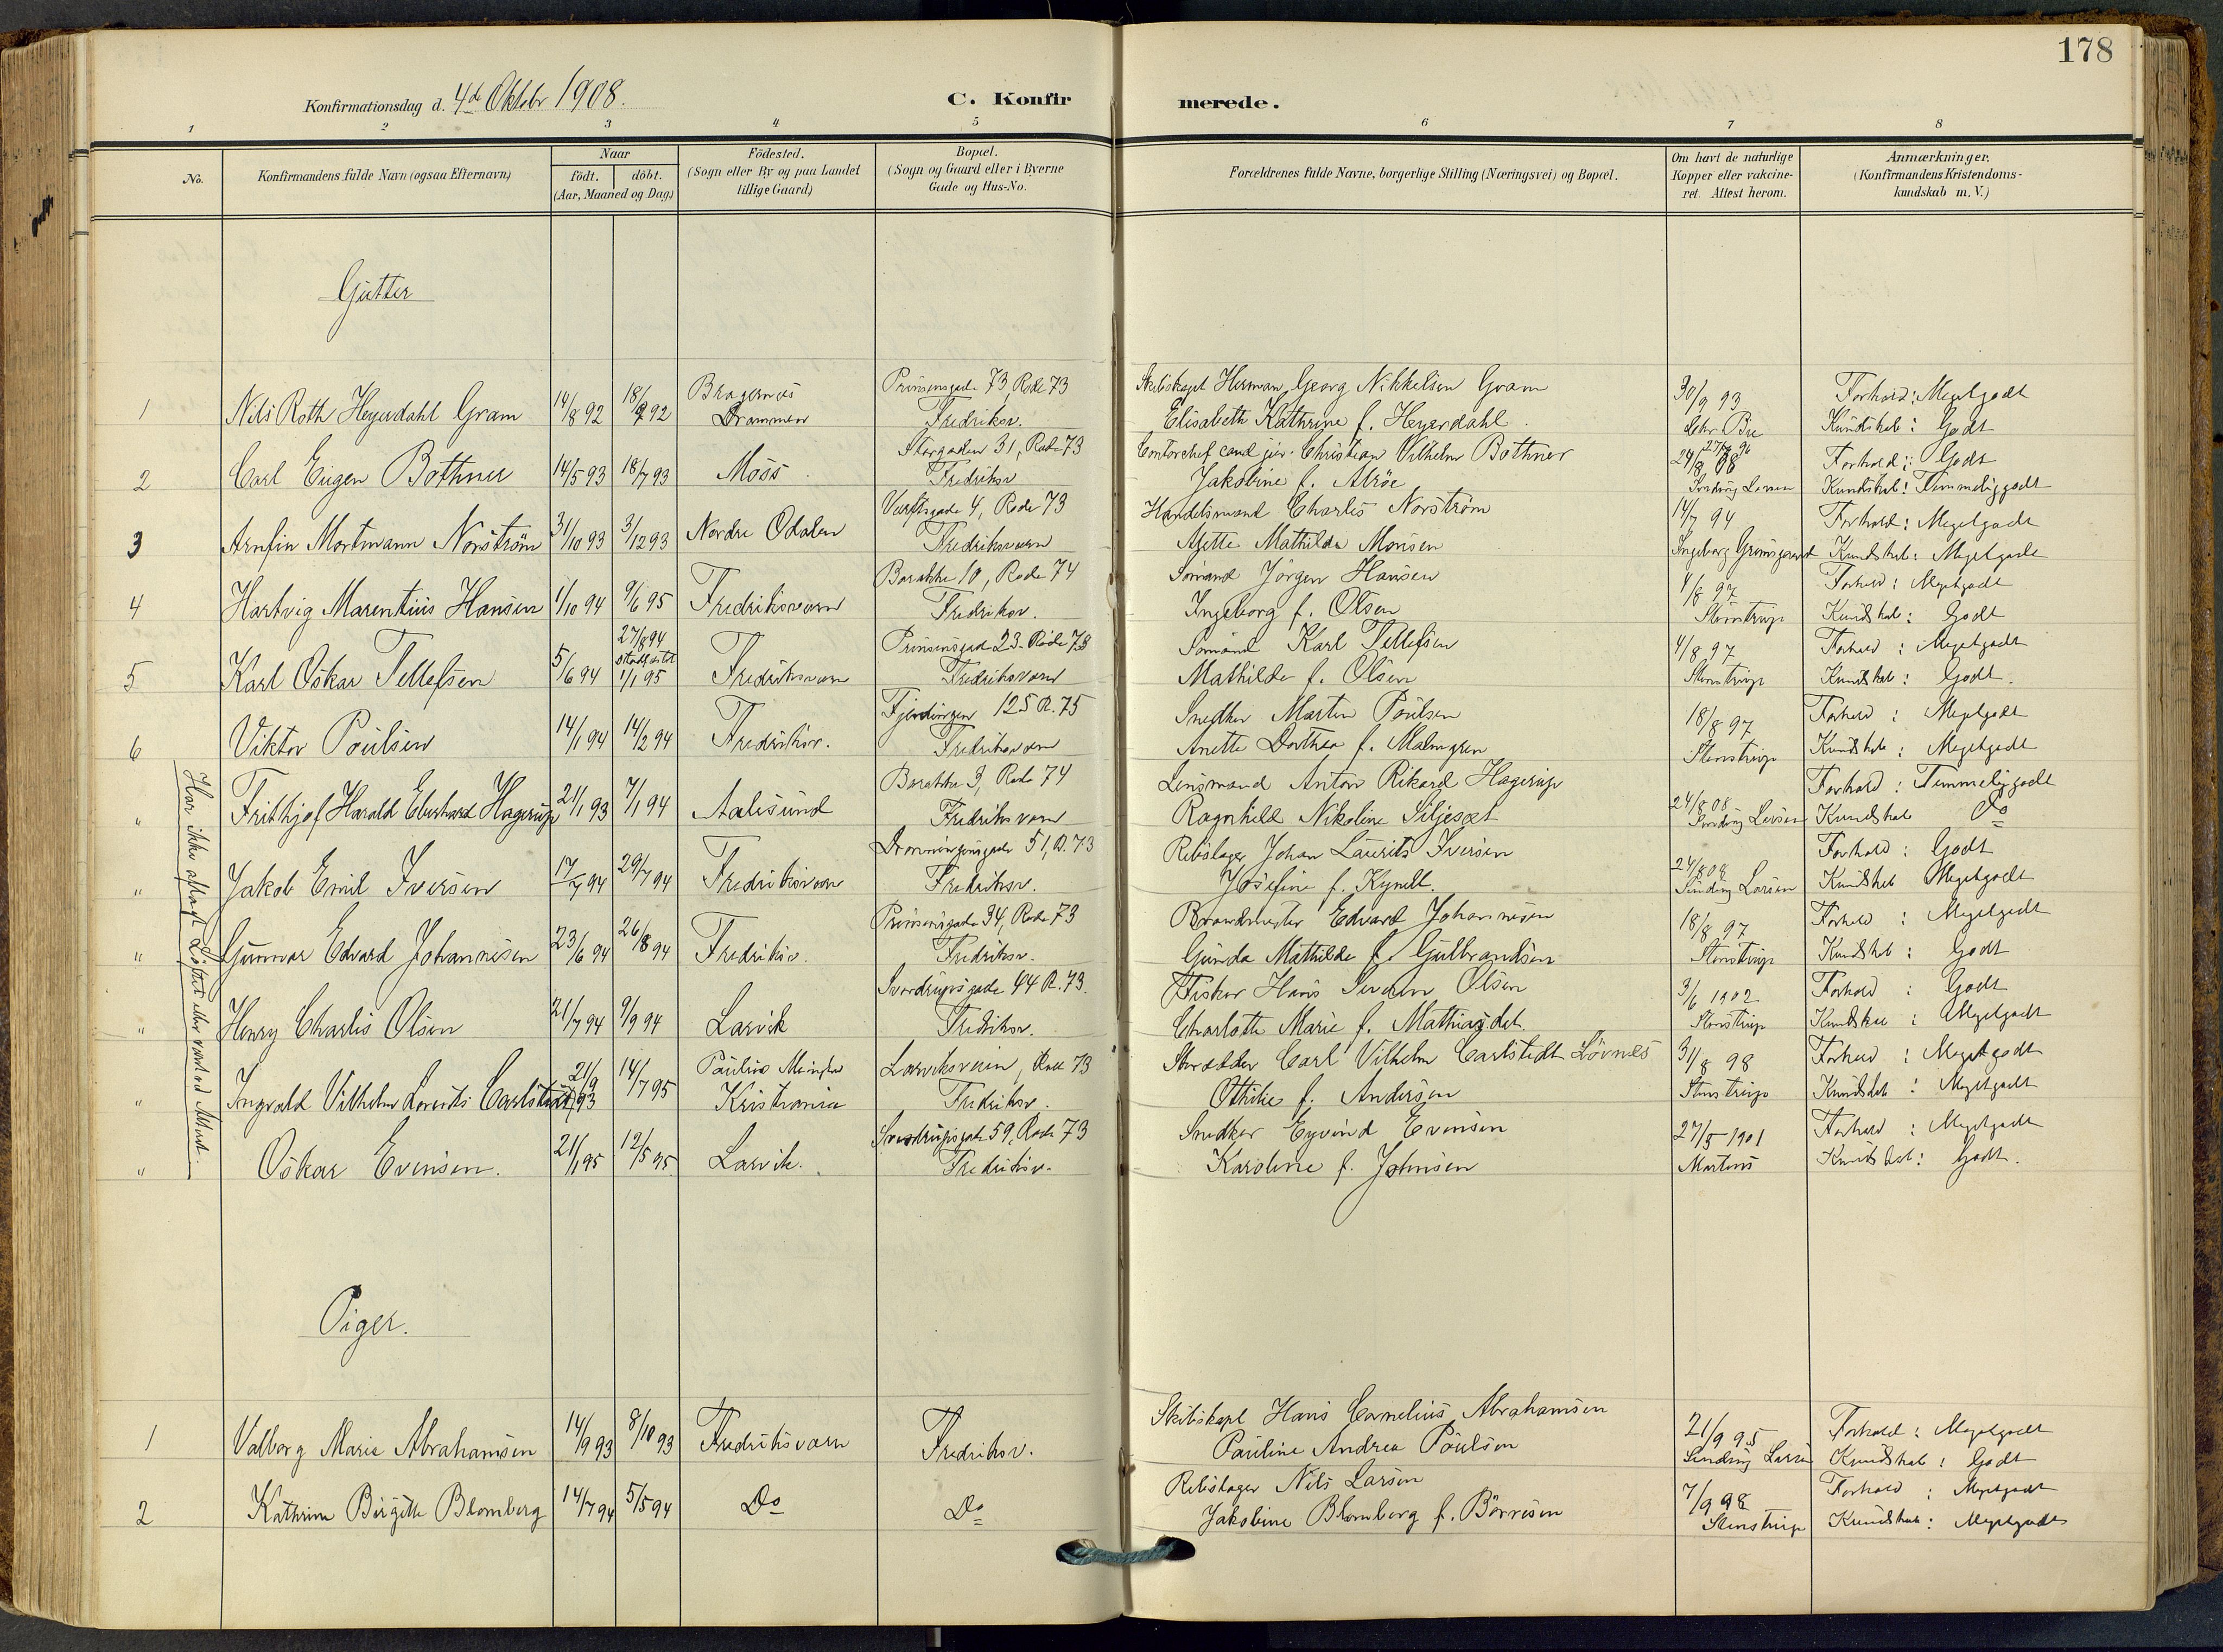 178
Konfirmationsdag d. 4de Oktobr 1908.
C. Konfirmerede.
1 2 3 4 5 6 7 8
No.
Konfirmandens fulde Navn (ogsaa Efternavn)
Naar
födt. döbt.
(Aar, Maaned og Dag)
Födested.
(Sogn eller By og paa Landet
tillige Gaard)
Bopæl.
(Sogn og Gaard eller i Byerne
Gade og Hus-No.
Forældrenes fulde Navne, borgerlige Stilling (Næringsvei) og Bopæl.
Om havt de naturlige
Kopper eller vakcine-
ret. Attest herom.
Anmærkninger.
(Konfirmandens Kristendoms-
kundskab m. V.)
Gutter
1 Nils Roth Heyerdahl Gram 14/8 92 18/9 92
Bragernes
Drammen
Prinsensgade 73, Rode 73
Fredriksv.
Skibskapt Herman Georg Nikkelsen Gram
Elisabeth Kathrine f. Heyerdahl.
30/9 93
Chr. Bie
Forhold: Megetgodt
Kundskab: Godt
2 Carl Eugen Bothner 14/5 93 18/7 93 Moss
Storgaden 31, Rode 73
Fredriksv
Contorchef cand jur. Christian Vilhelm Bothner
Jakobine f. Alröe
24/8 08
Sinding Larsen
Forhold: Godt
Kundskab: Temmeliggodt
3 Arnfin Mortmann Norström 31/10 93 3/12 93 Nordre Odalen
Værftsgade 4, Rode 73
Fredriksværn
Handelsmand Charles Norström
Agette Mathilde Monsen
14/7 94
Ingeborg Grønsgaard
Forhold: Megetgodt
Kundskab: Megetgodt
4 Hartvig Marentius Hansen 1/10 94 9/6 95 Fredriksværn
Barakke 10, Rode 74
Fredriksv.
Sömand Jörgen Hansen
Ingeborg f. Olsen
4/8 97
Stenstrup
Forhold: Megetgodt
Kundskab: Godt
5 Karl Oskar Tellefsen 5/6 94
27/8 94
stadfæstet
1/1 95
Fredriksværn
Prinsensgad 23. Rode 73
Fredriksværn
Sömand Karl Tellefsen
Mathilde f. Olsen
4/8 97
Stenstrup
Forhold: Megetgodt
Kundskab: Godt.
6 Viktor Poulsen 14/1 94 14/2 94 Fredriksv.
Fjerdingen 125 R. 75
Fredriksværn
Snedker Martin Poulsen
Anette Dorthea f. Malmgren
18/8 97
Stenstrup
Forhold: Megetgodt
Kundskab: Megetgodt
Har ikke aflagt Löftet eller været ved Alteret.
" Frithjof Harald Eberhard Hagerup 21/1 93 7/1 94 Aalesund
Barakke 3, Rode 74
Fredriksværn
Lensmand Anton Rikard Hagerup
Ragnhild Nikoline Siljeset
24/8 08
Sinding Larsen
Forhold: Temmeliggodt
Kundskab Do
" Jakob Emil Iversen 17/7 94 29/7 94 Fredriksværn
Dronningensgade 51, R. 73
Fredriksv.
Rebslager Johan Laurits Iversen
Josefine f. Kyndt.
24/8 08
Sinding Larsen
Forhold: Godt
Kundskab Megetgodt
" Gunnar Edvard Johannesen 23/6 94 26/8 94 Fredriksv.
Prinsensgade 34, Rode 73
Fredriksv.
Brandmester Edvard Johannesen
Gunda Mathilde f. Gulbrandsen
18/8 97
Stenstrup
Forhold: Megetgodt
Kundskab: Godt
" Henry Charles Olsen 21/7 94 9/9 94 Larvik
Sverdrupsgade 44 R. 73.
Fredriksv.
Fisker Hans Severin Olsen
Charlotte Marie f. Mathiasdet.
3/6 1902
Stenstrup
Forhold: Godt
Kundskab: Megetgodt
" Ingvald Vilhelm Laurits Carlstedt 21/9 93 14/7 95
Paulus Menighed
Kristiania
Larviksveien, Rode 73
Fredriksv.
Carl Vilhelm Carlstedt Lövnes
Othilie f. Andersen
31/8 98
Stenstrup
Forhold: Megetgodt
Kundskab: Megetgodt
" Oskar Evensen. 21/1 95 12/5 95. Larvik.
Sverdrupsgade 59, Rode 73
Fredriksv.
Snedker Eyvind Evensen
Karoline f. Johnsen
27/5 1901
Martens
Forhold: Megetgodt
Kundskab: Godt.
Piger.
1 Valborg Marie Abrahamsen 14/9 93 8/10 93 Fredriksværn Fredriksv.
Skibskapt Hans Cornelius Abrahamsen
Pauline Andrea Poulsen
21/9 95
Sinding Larsen
Forhold: Megetgodt
Kundskab: Godt
2 Kathrine Birgitte Blomberg 14/7 94 5/5 94 Do Do
Rebslager Nils Larsen
Jakobine Blomberg f. Börresen
7/9 98
Stenstrup
Forhold: Megetgodt
Kundskab: Megetgodt